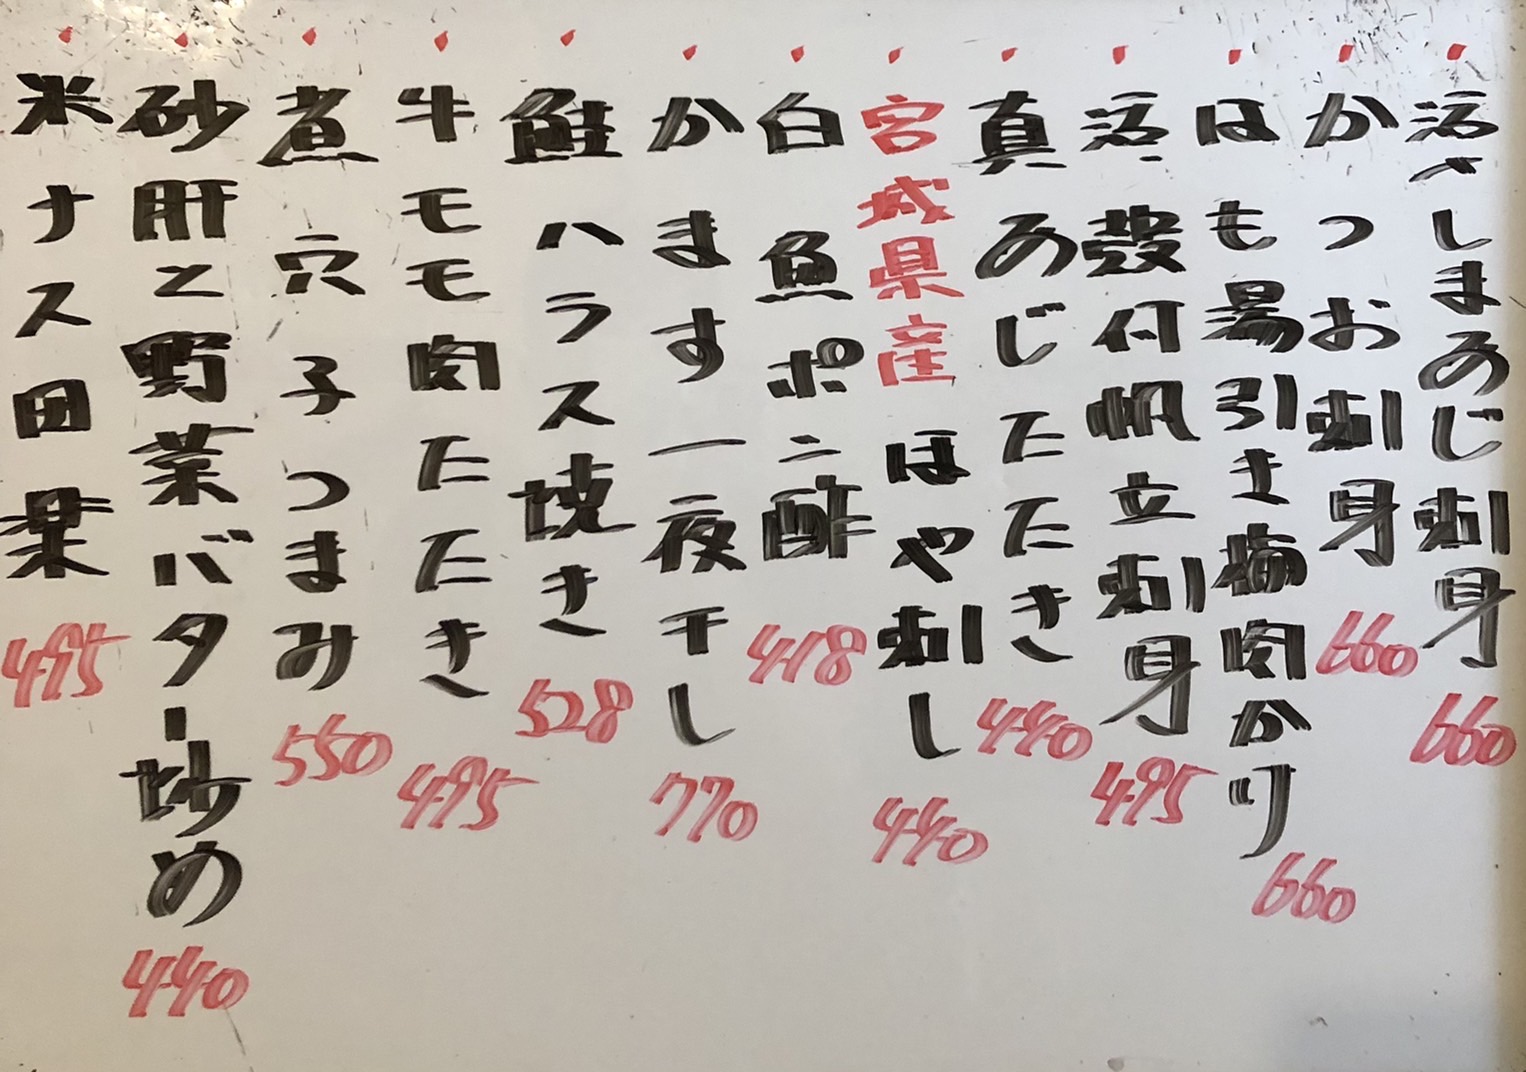 活〆しまあじ刺身 660
かつお刺身 660
はも湯引き梅肉かけ 660
活殻付帆立刺身 495
真あじたたき 440
宮城県産ほや刺し 440
白魚ポン酢 418
かます一夜干し 770
鮭ハラス焼き 528
牛モモ肉たたき 495
煮穴子つまみ 550
砂肝と野菜バター炒め 440
米ナス田楽 495